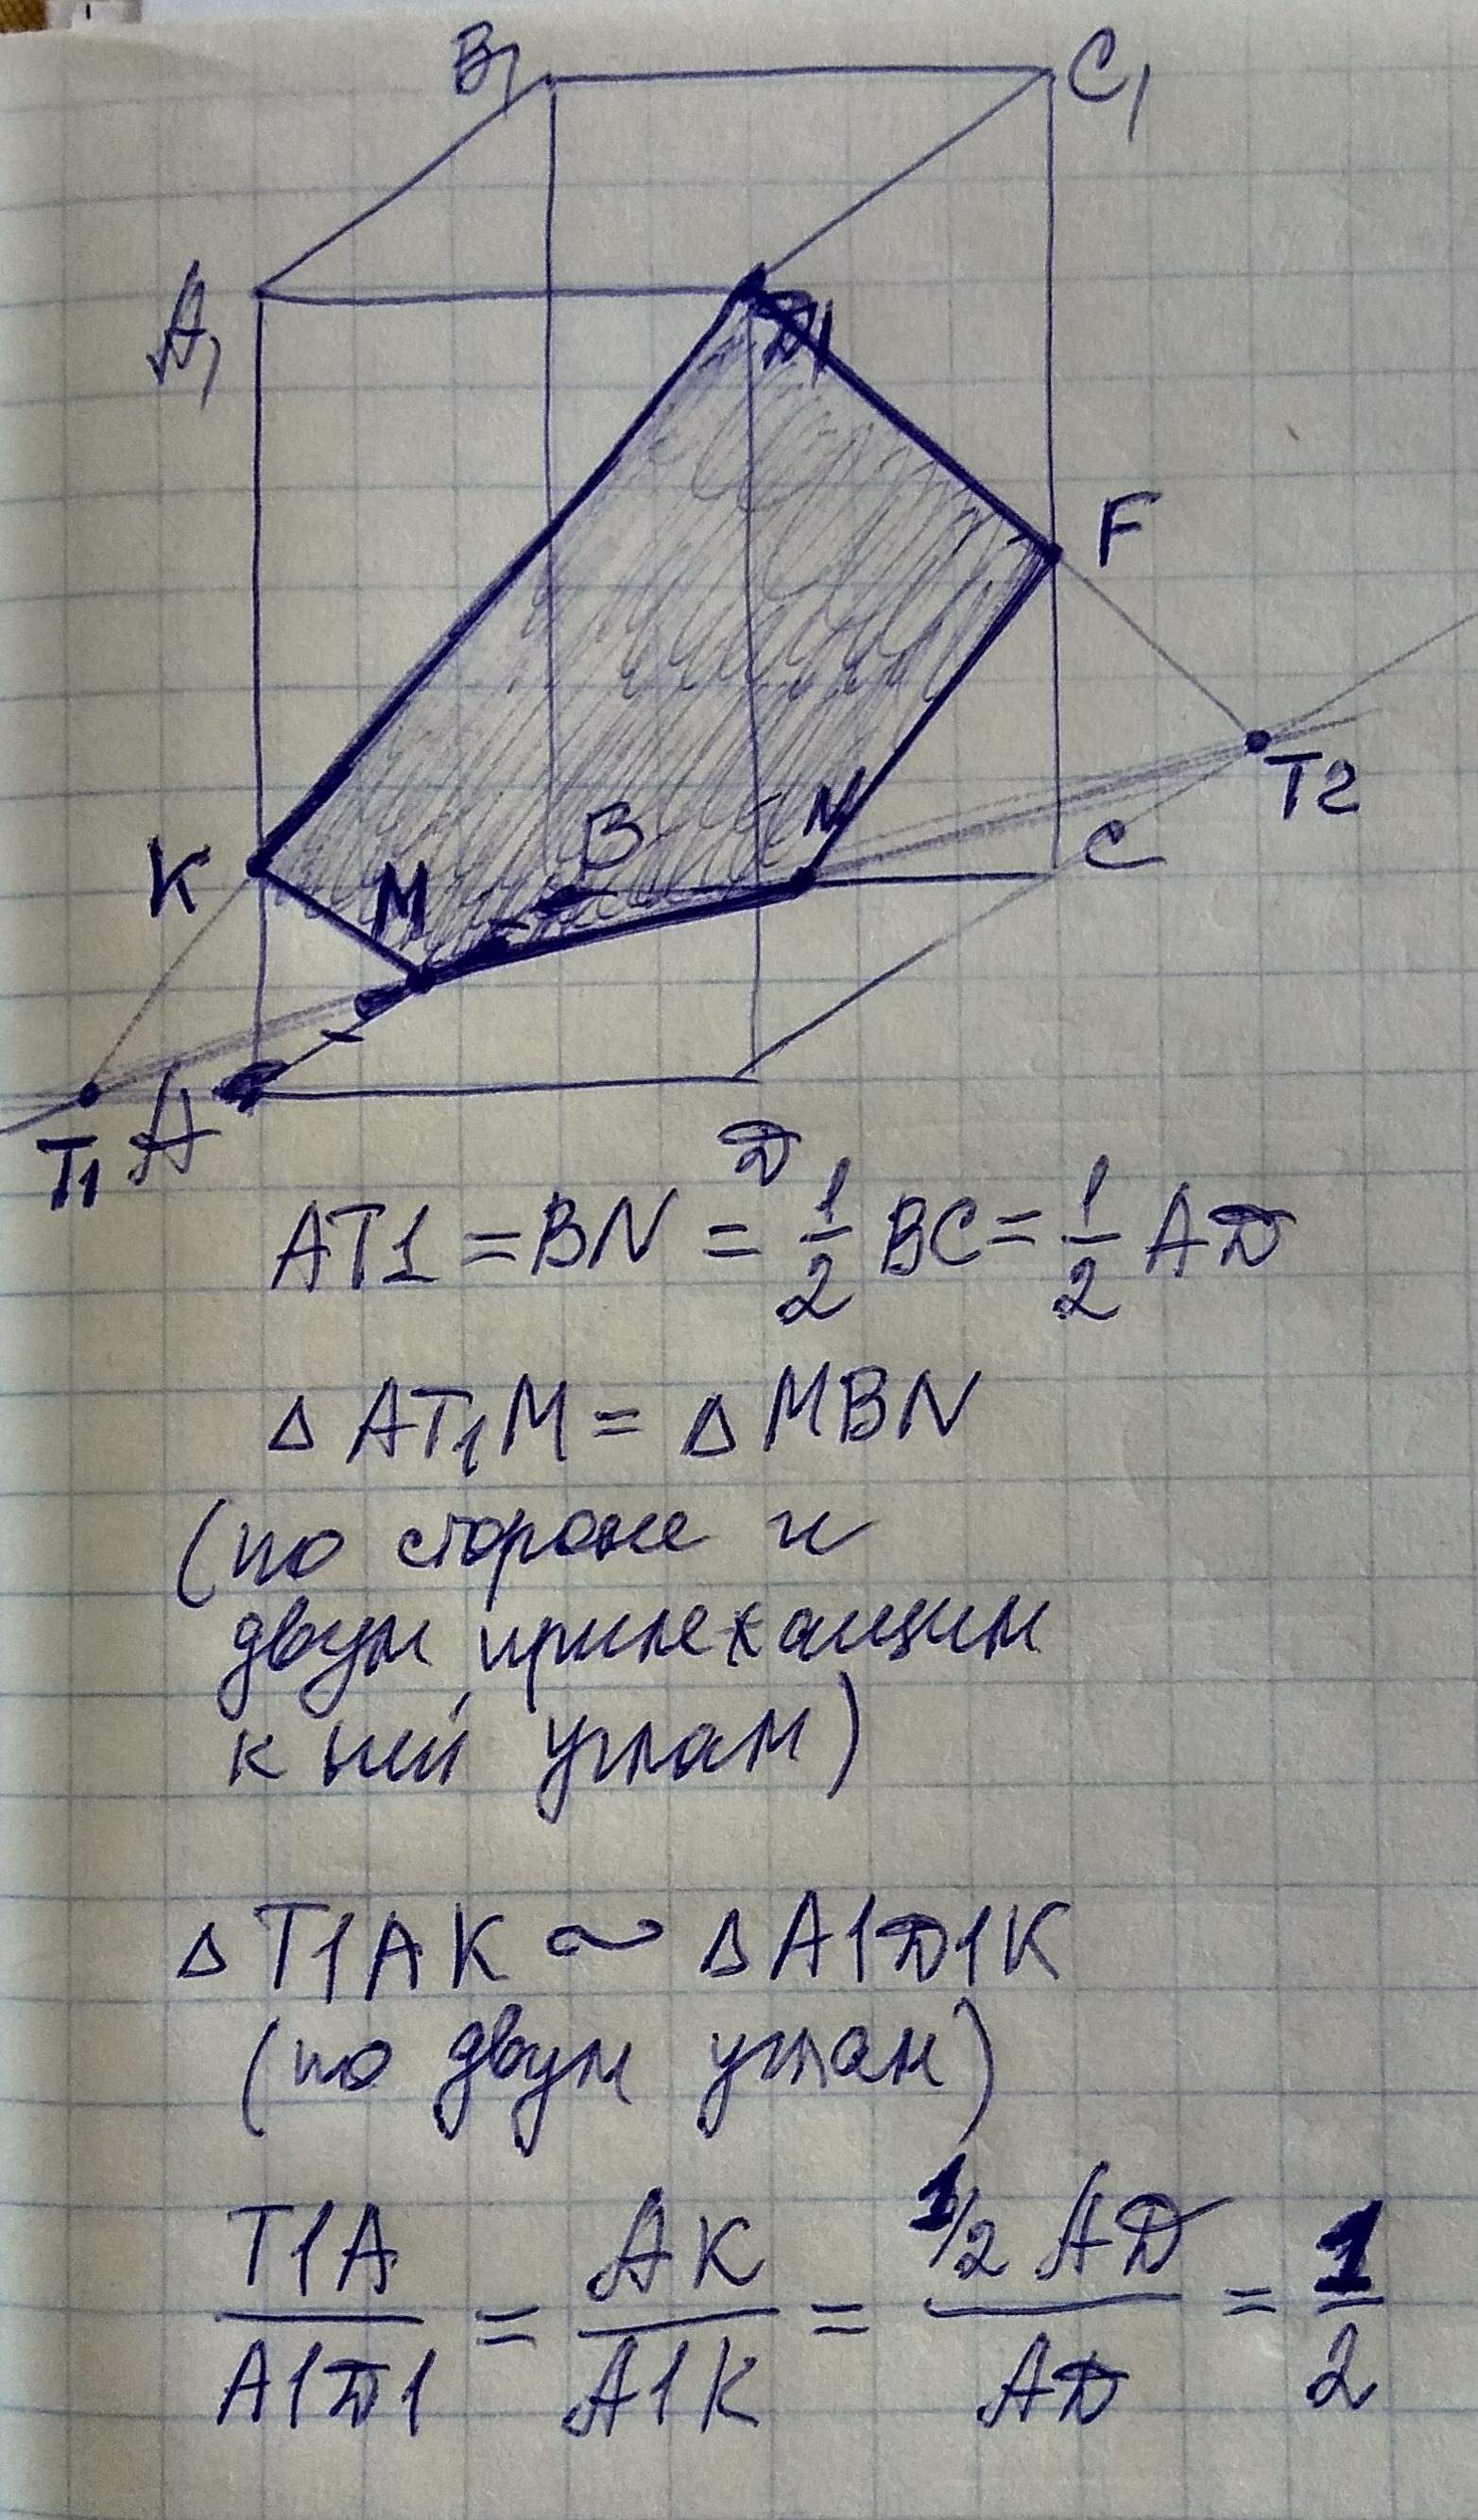 B1
C1
A1
D1
F
K
M
B
N
T2
C
T1 A
D
AT1 = BN = 1/2 BC = 1/2 AD
Δ AT1M = Δ MBN
(по стороне и
двум прилежащим
к ней углам)
Δ T1AK ~ Δ A1D1K
(по двум углам)
T1A/A1D1 = AK/A1K = 1/2 AD/AD = 1/2